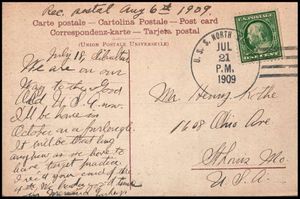 Rec. postal Aug 6th 1909
Carte postale – Cartolina Postale – Post card
Correspondenz-karte – Tarjeta postal
(Union Postale Universelle)
U. S. S. NORTH
JUL
21
P.M.
1909
July 18,
We are on our
way to the good
old U.S. now.
I'll be home in
October on a furlough.
It will be that long
anyhow as we have to
have target practice
Mr Henry
1608 Ohio Ave
St Louis Mo.
U.S.A.